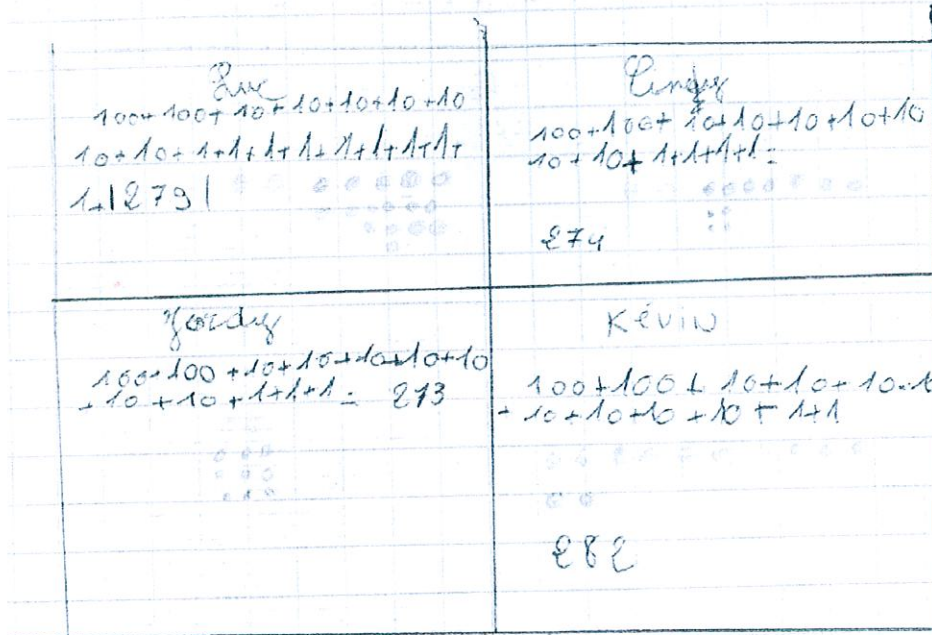 Luc
100+100+10+10+10+10+10
10+10+1+1+1+1+1+1+1+1+
1+|279|
Cindy
100+100+10+10+10+10+10
10+10+1+1+1+1=
274
Jordy
100+100+10+10+10+10+10
+10+10+1+1+1= 273
Kévin
100+100+10+10+10+10
+10+10+10+10+1+1
282